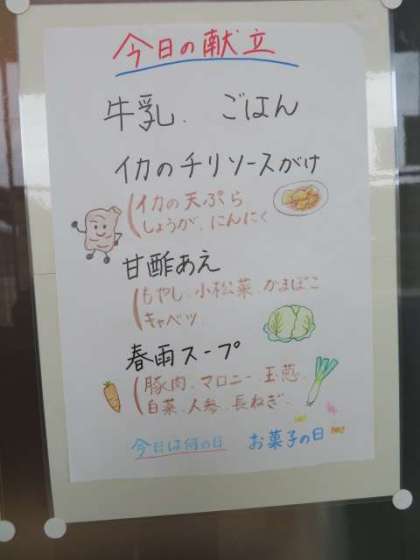 今日の献立
牛乳、ごはん
イカのチリソースがけ
イカの天ぷら
しょうが、にんにく
甘酢あえ
もやし、小松菜、かまぼこ
キャベツ
春雨スープ
豚肉、マロニー、玉葱、
白菜、人参、長ねぎ、
今日は何の日 お菓子の日